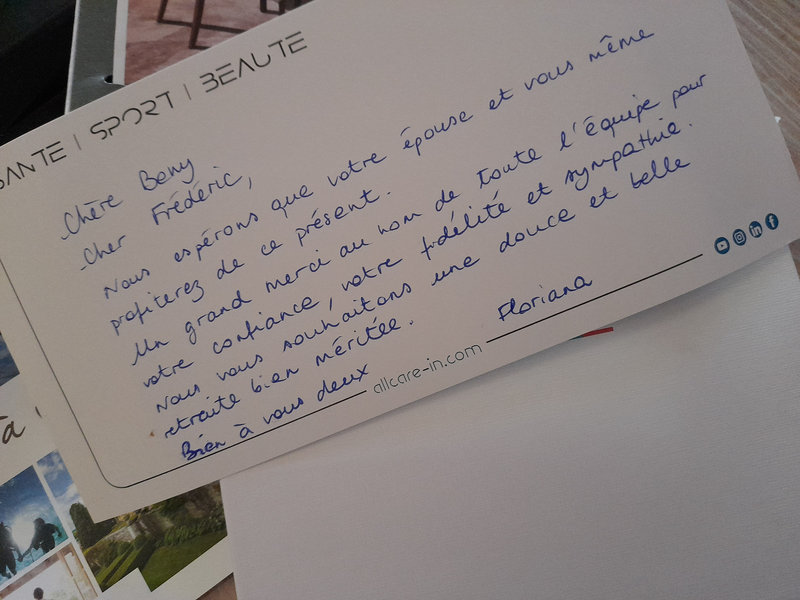 SANTE | SPORT | BEAUTE
Chère Beny
Cher Frédéric,
Nous espérons que votre épouse et vous même
profiterez de ce présent.
Un grand merci au nom de toute l'équipe pour
votre confiance, votre fidélité et sympathie.
Nous vous souhaitons une douce et belle
retraite bien méritée.
Bien à vous deux
Floriana
allcare-in.com
à